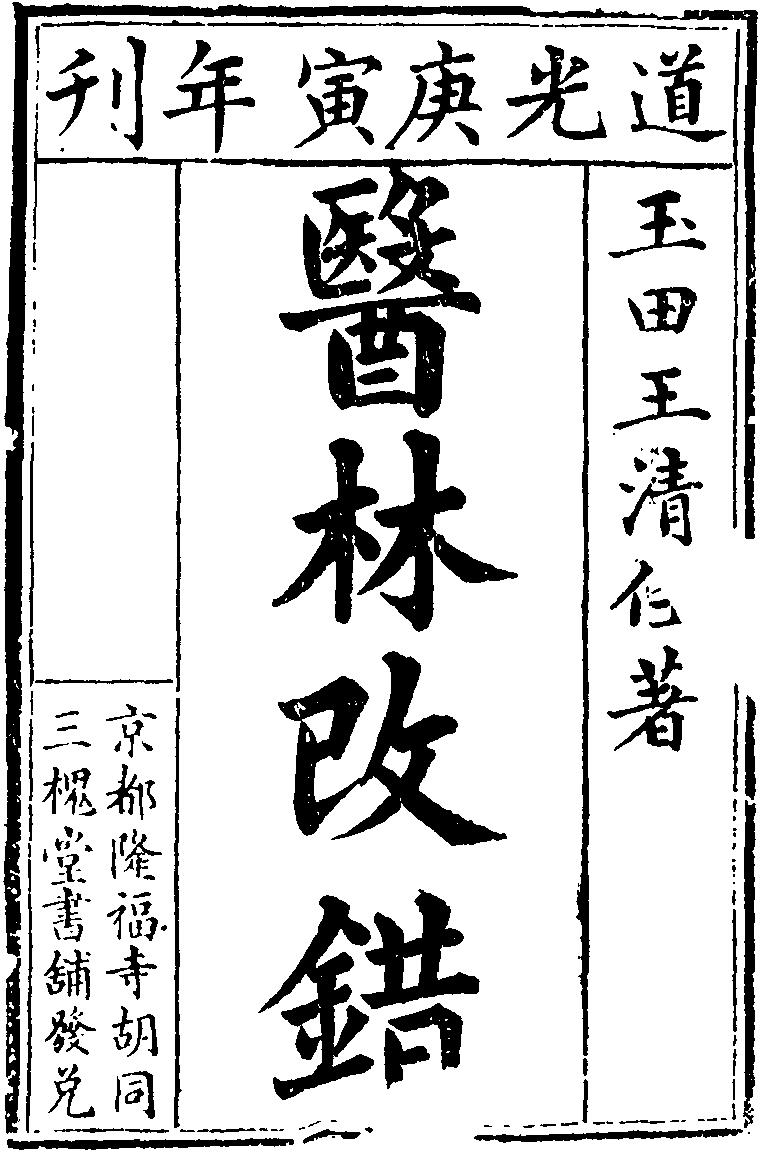 道光庚寅年刊
玉田王清任著
醫林改錯
京都隆福寺胡同
三槐堂書舖發兌